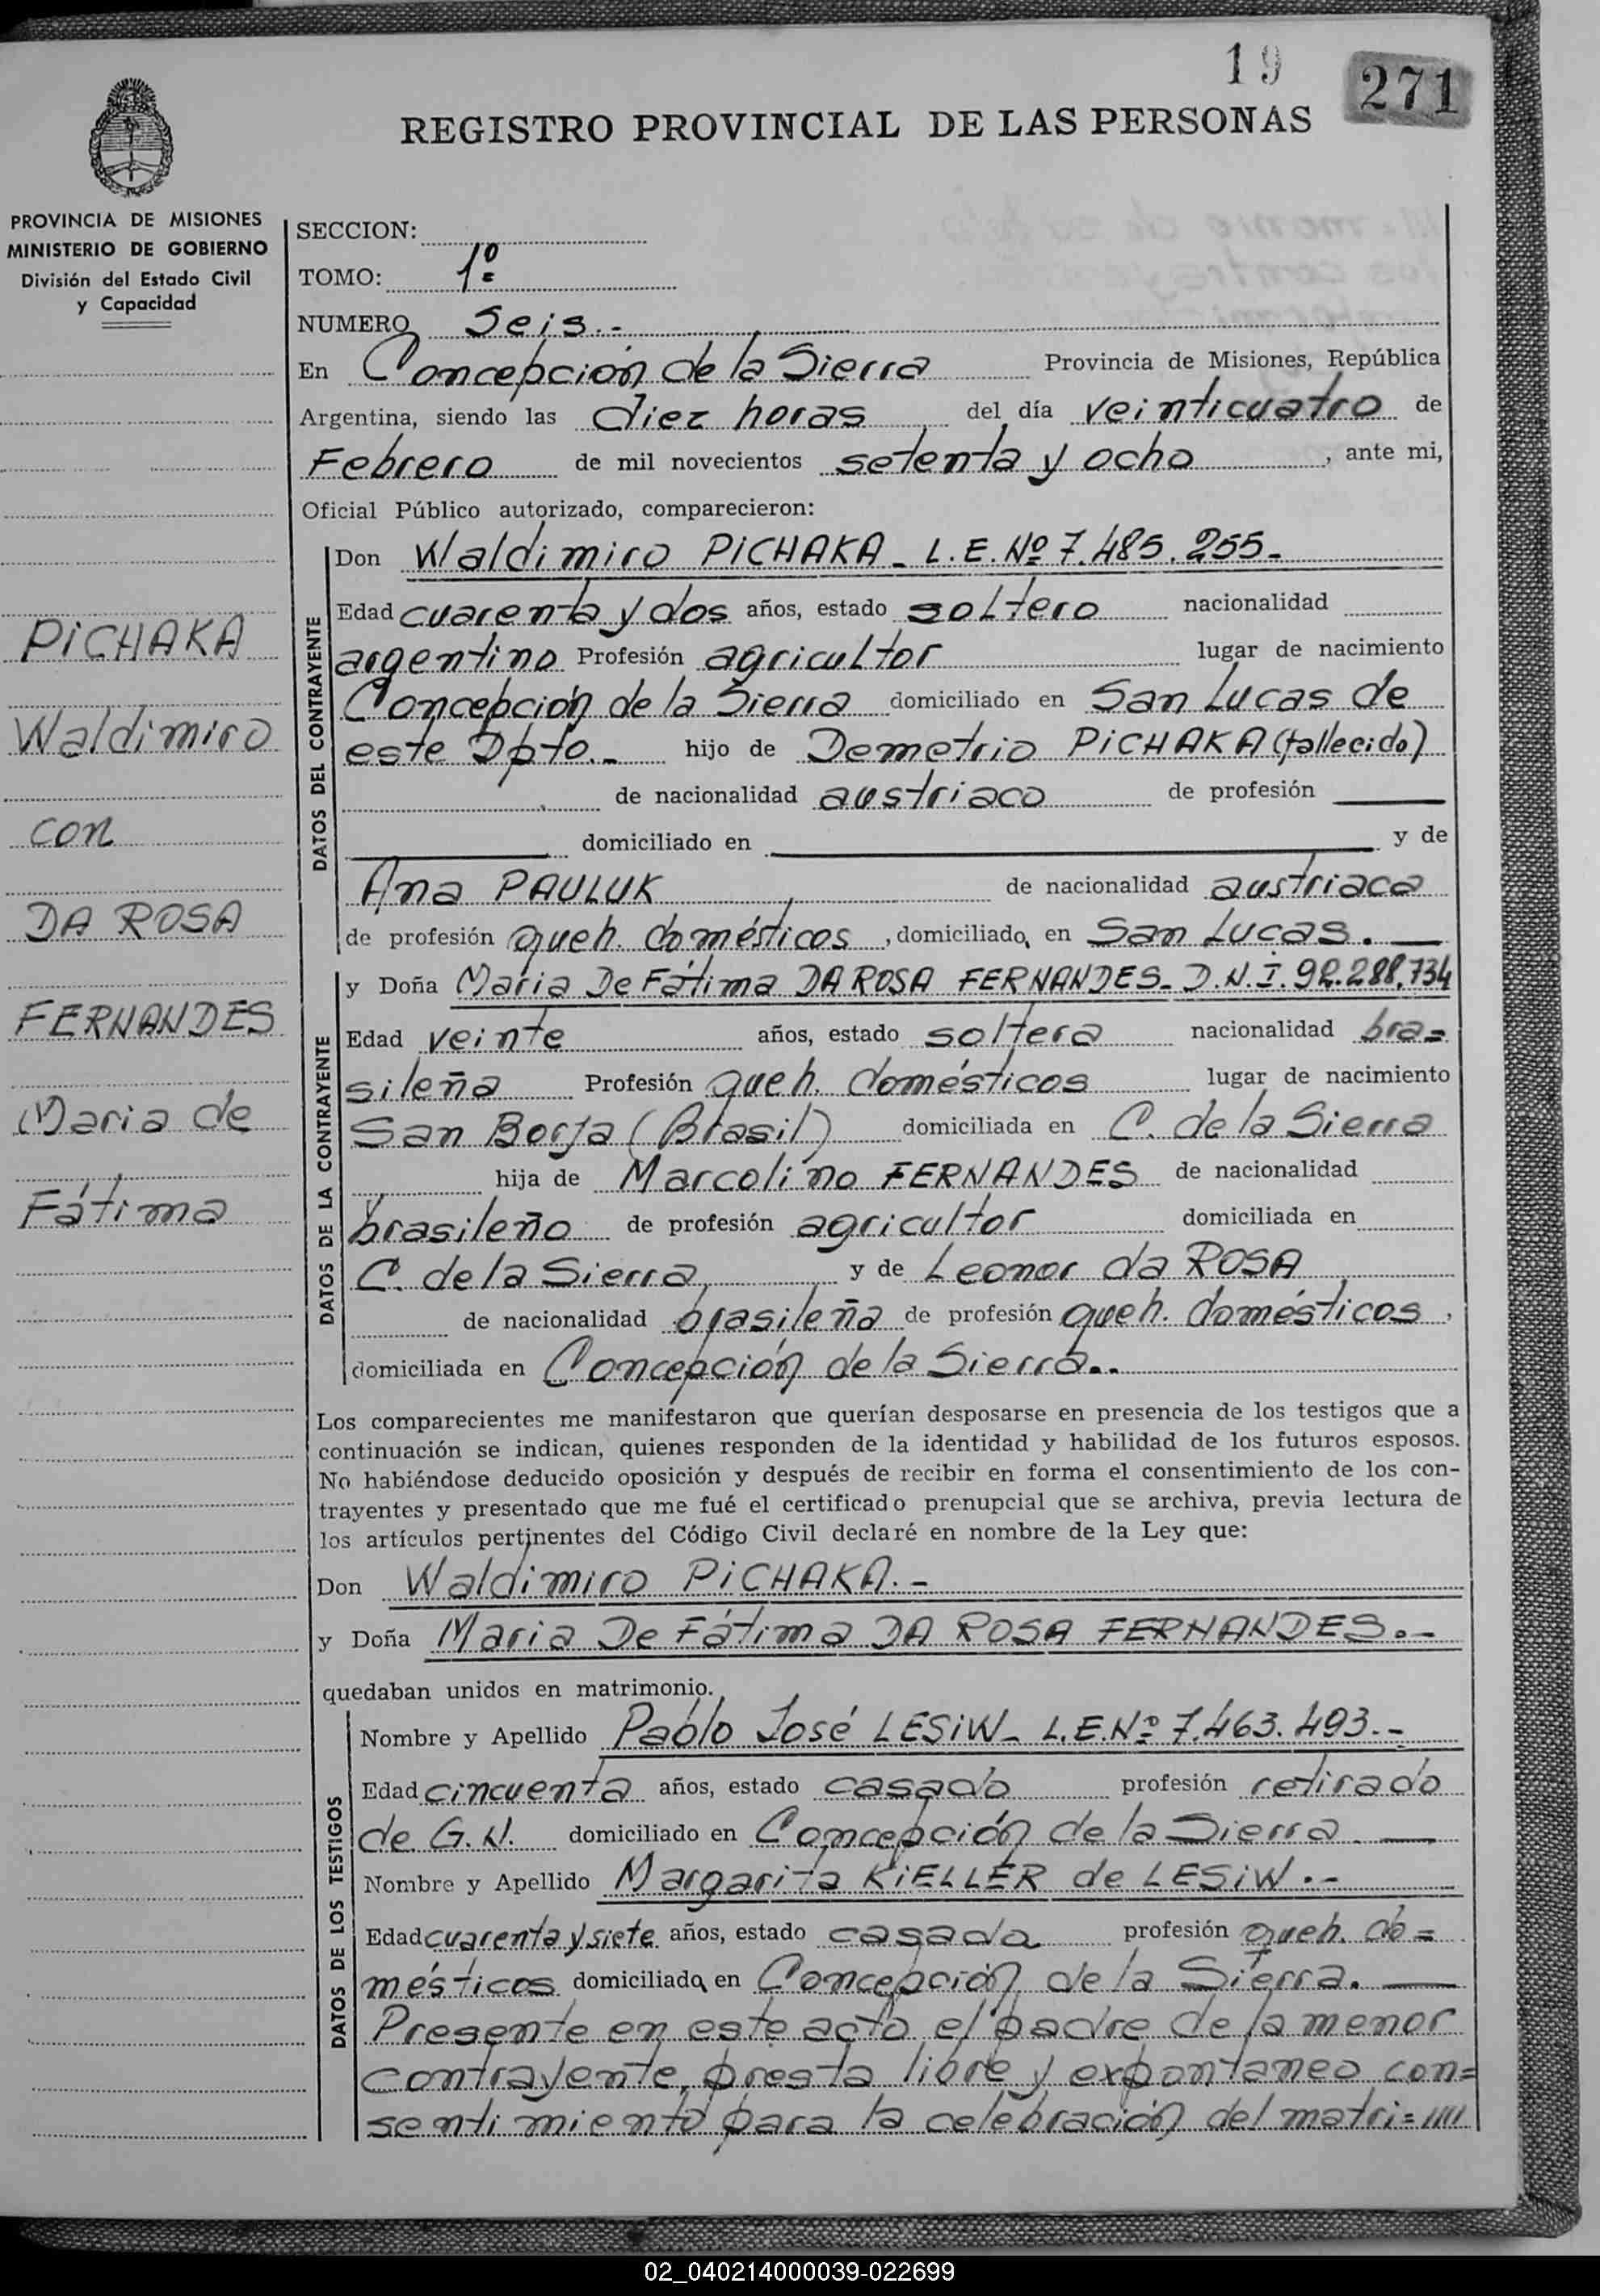 19
271
REGISTRO PROVINCIAL DE LAS PERSONAS
PROVINCIA DE MISIONES
MINISTERIO DE GOBIERNO
División del Estado Civil
y Capacidad
PICHAKA
Waldimiro
con
DA ROSA
FERNANDES
Maria de
Fátima
SECCION:
TOMO: 1º
NUMERO Seis.-
En Concepción de la Sierra Provincia de Misiones, República
Argentina, siendo las diez horas del día veinticuatro de
Febrero de mil novecientos setenta y ocho, ante mi,
Oficial Público autorizado, comparecieron:
DATOS DEL CONTRAYENTE
Don Waldimiro PICHAKA - L.E. Nº 7.485.255-
Edad cuarenta y dos años, estado soltero nacionalidad
argentino Profesión agricultor lugar de nacimiento
Concepción de la Sierra domiciliado en San Lucas de
este Dpto.- hijo de Demetrio PICHAKA (fallecido)
de nacionalidad austriaco de profesión
domiciliado en y de
Ana PAULUK de nacionalidad austriaca
de profesión queh. domésticos, domiciliada en San Lucas. —
DATOS DE LA CONTRAYENTE
y Doña Maria De Fátima DA ROSA FERNANDES- D.N.I. 92.288.734
Edad veinte años, estado soltera nacionalidad bra=
sileña Profesión queh. domésticos lugar de nacimiento
San Borja (Brasil) domiciliada en C. de la Sierra
hija de Marcolino FERNANDES de nacionalidad
brasileño de profesión agricultor domiciliada en
C. de la Sierra y de Leonor da ROSA
de nacionalidad brasileña de profesión queh. domésticos,
domiciliada en Concepción de la Sierra..
Los comparecientes me manifestaron que querían desposarse en presencia de los testigos que a
continuación se indican, quienes responden de la identidad y habilidad de los futuros esposos.
No habiéndose deducido oposición y después de recibir en forma el consentimiento de los con-
trayentes y presentado que me fué el certificado prenupcial que se archiva, previa lectura de
los artículos pertinentes del Código Civil declaré en nombre de la Ley que:
Don Waldimiro PICHAKA.-
y Doña Maria De Fátima DA ROSA FERNANDES.-
quedaban unidos en matrimonio.
DATOS DE LOS TESTIGOS
Nombre y Apellido Pablo José LESIW- L.E. Nº 7.463.493.-
Edad cincuenta años, estado casado profesión retirado
de G.N. domiciliado en Concepción de la Sierra. —
Nombre y Apellido Margarita KiELLER de LESIW.-
Edad cuarenta y siete años, estado casada profesión queh. do=
mésticos domiciliada en Concepción de la Sierra. —
Presente en este acto el padre de la menor
contrayente, presta libre y expontaneo con=
sentimiento para la celebración del matri=////
02_040214000039-022699